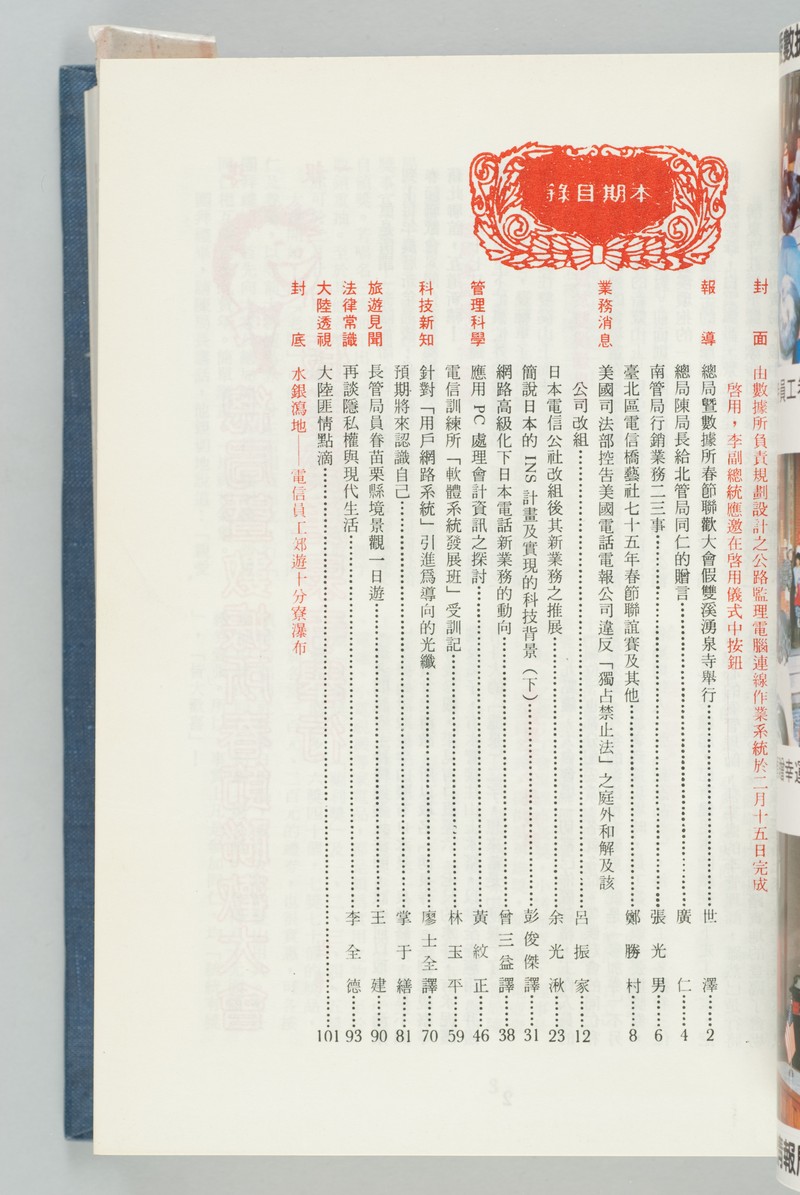 本期目錄
封面 由數據所負責規劃設計之公路監理電腦連線作業系統於二月十五日完成
啓用，李副總統應邀在啓用儀式中按鈕
報導 總局暨數據所春節聯歡大會假雙溪湧泉寺舉行……世澤……2
總局陳局長給北管局同仁的贈言……廣仁……4
南管局行銷業務二三事……張光男……6
臺北區電信橋藝社七十五年春節聯誼賽及其他……鄭勝村……8
業務消息 美國司法部控告美國電話電報公司違反「獨占禁止法」之庭外和解及該
公司改組……呂振家……12
日本電信公社改組後其新業務之推展……余光湫……23
簡說日本的INS計畫及實現的科技背景（下）……彭俊傑譯……31
網路高級化下日本電話新業務的動向……曾三益譯……38
管理科學 應用PC處理會計資訊之探討……黃紋正……46
電信訓練所「軟體系統發展班」受訓記……林玉平……59
科技新知 針對「用戶網路系統」引進爲導向的光纖……廖士全譯……70
預期將來認識自己……掌于繕……81
旅遊見聞 長管局員眷苗栗縣境景觀一日遊……王建……90
法律常識 再談隱私權與現代生活……李全德……93
大陸透視 大陸匪情點滴……101
封底 水銀瀉地——電信員工郊遊十分寮瀑布